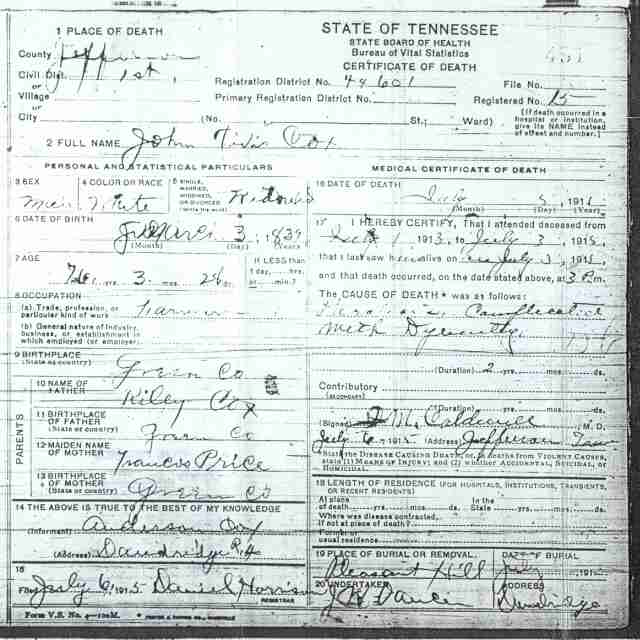 STATE OF TENNESSEE
STATE BOARD OF HEALTH
Bureau of Vital Statistics
CERTIFICATE OF DEATH
1 PLACE OF DEATH
County Jefferson
Civil Dist. 1st,
or
Village
or
City (No. St.; Ward)
Registration District No. 48601 File No.
Primary Registration District No. Registered No. 15
[If death occurred in a hospital or institution, give its NAME instead of street and number.]
2 FULL NAME John Cox
PERSONAL AND STATISTICAL PARTICULARS
3 SEX 4 COLOR OR RACE 5 SINGLE, MARRIED, WIDOWED, OR DIVORCED
White Widowed
6 DATE OF BIRTH
3, 1839
(Month) (Day) (Year)
7 AGE If LESS than
76 yrs. 3 mos. 1 day, hrs. or min.?
8 OCCUPATION
(a) Trade, profession, or particular kind of work Farmer
(b) General nature of Industry, business, or establishment in which employed (or employer)
9 BIRTHPLACE
(State or country) Green Co
PARENTS
10 NAME OF FATHER Riley Cox
11 BIRTHPLACE OF FATHER
(State or country) Green Co
12 MAIDEN NAME OF MOTHER Frances Price
13 BIRTHPLACE OF MOTHER
(State or country) Green Co
14 THE ABOVE IS TRUE TO THE BEST OF MY KNOWLEDGE
(Informant) Anderson Cox
(Address) Dandridge
15
Filed July 6, 1915 Daniel Harrison
REGISTRAR
Form V.S. No. 4—100M.
MEDICAL CERTIFICATE OF DEATH
16 DATE OF DEATH
July 1915
(Month) (Day) (Year)
17 I HEREBY CERTIFY, That I attended deceased from
1, 1913, to July 3, 1915,
that I last saw him alive on July 3, 1915,
and that death occurred, on the date stated above, at 3 P.m.
The CAUSE OF DEATH * was as follows:
With Dysentery
(Duration) 2 yrs. mos. ds.
Contributory
(SECONDARY)
(Duration) yrs. mos. ds.
(Signed) M. Caldwell, M. D.
July 6, 1915 (Address) Jefferson Tenn
*State the DISEASE CAUSING DEATH, or, in deaths from VIOLENT CAUSES, state (1) MEANS OF INJURY; and (2) whether ACCIDENTAL, SUICIDAL, or HOMICIDAL.
18 LENGTH OF RESIDENCE (FOR HOSPITALS, INSTITUTIONS, TRANSIENTS, OR RECENT RESIDENTS)
At place of death yrs. mos. ds. In the State yrs. mos. ds.
Where was disease contracted,
If not at place of death?
Former or
usual residence
19 PLACE OF BURIAL OR REMOVAL DATE OF BURIAL
Pleasant Hill July 1915
20 UNDERTAKER ADDRESS
Dandridge